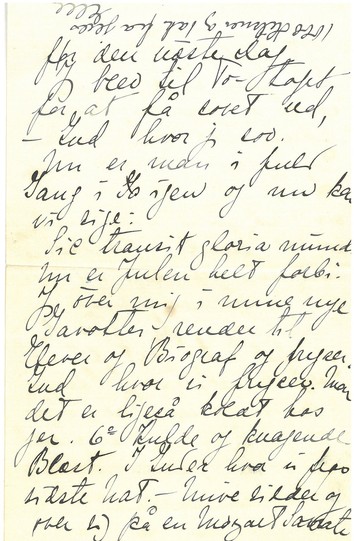 1000 Hilsner og Tak fra jeres
Elle
før den næste dag
blev til To-Toget
for at få sovet ud,
– Gud hvor jeg sov.
Nu er man i fuld
Gang i Kø igen og nu kan
vi sige:
Sic transit gloria mundi
Nu er Julen helt forbi.
Jeg över mig i mine nye
Gavotter, render til
Elever og Biograf og fryser.
Gud hvor vi fryser. Mon
det er ligeså koldt hos
jer. 6° Kulde og knagende
Blæst. I Guder hvor vi frøs
sidste Nat. – Muve sidder og
över sig på en Mozart Sonate